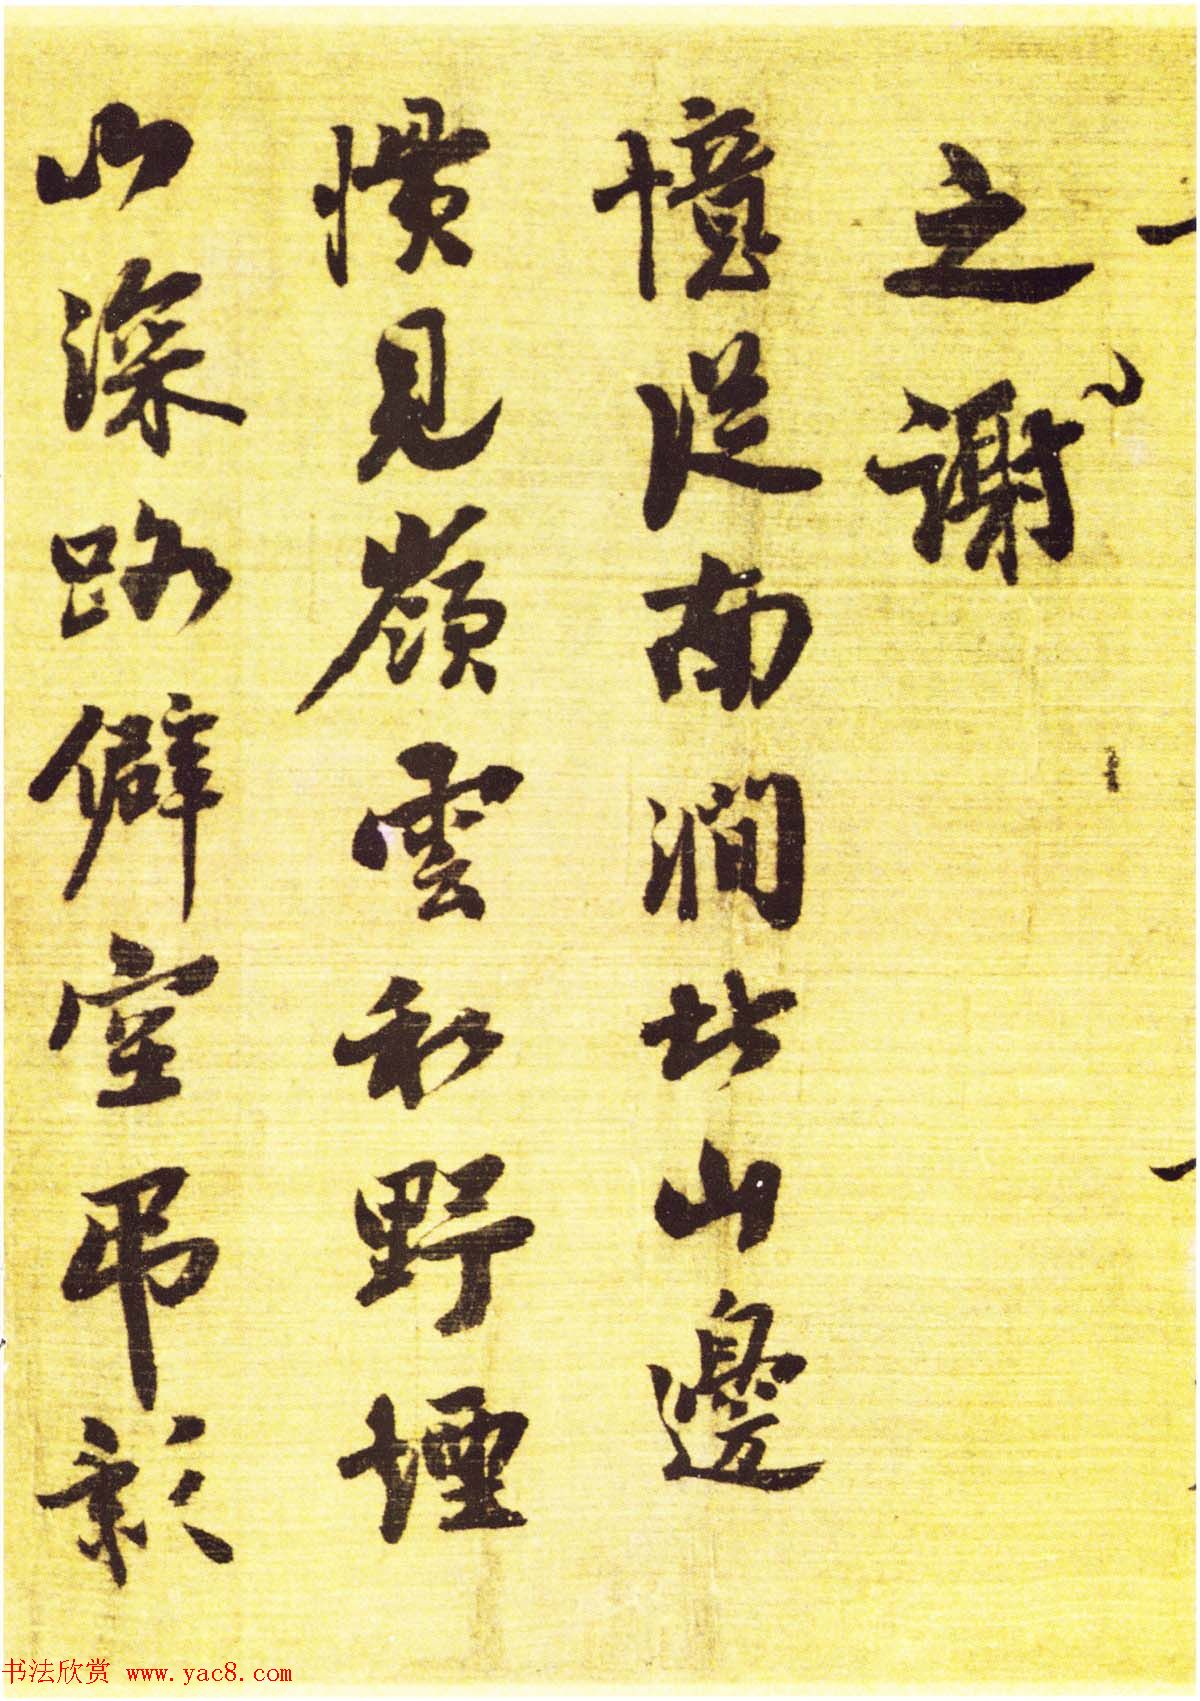 之謝
憶從南澗北山邊
慣見嶺雲和野煙
山深路僻空弔影
书法欣赏 www.yac8.com